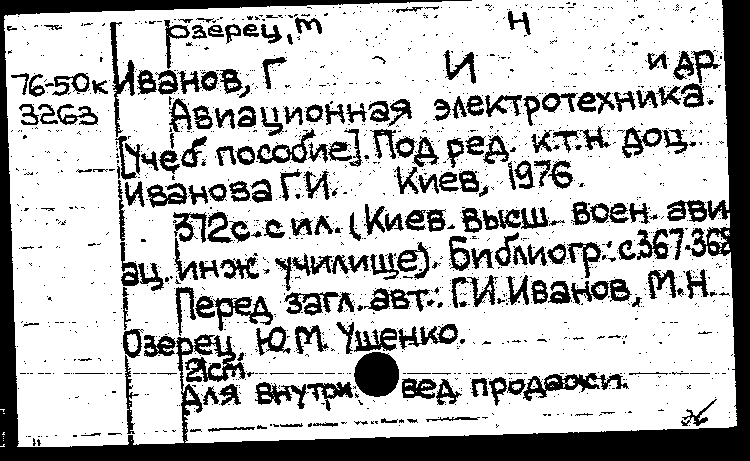 Озерец, М Н
76-50к Иванов, Г И и др
3263 Авиационная электротехника.
[Учеб. пособие]. Под ред. к.т.н. доц.
Иванова Г.И. Киев, 1976.
372с. с ил. (Киев. высш. воен. ави-
ац. инж. училище). Библиогр.: с.367-368
Перед загл. авт.: Г.И. Иванов, М.Н.
Озерец, Ю.М. Ущенко.
21см.
Для внутри вед. продажи.